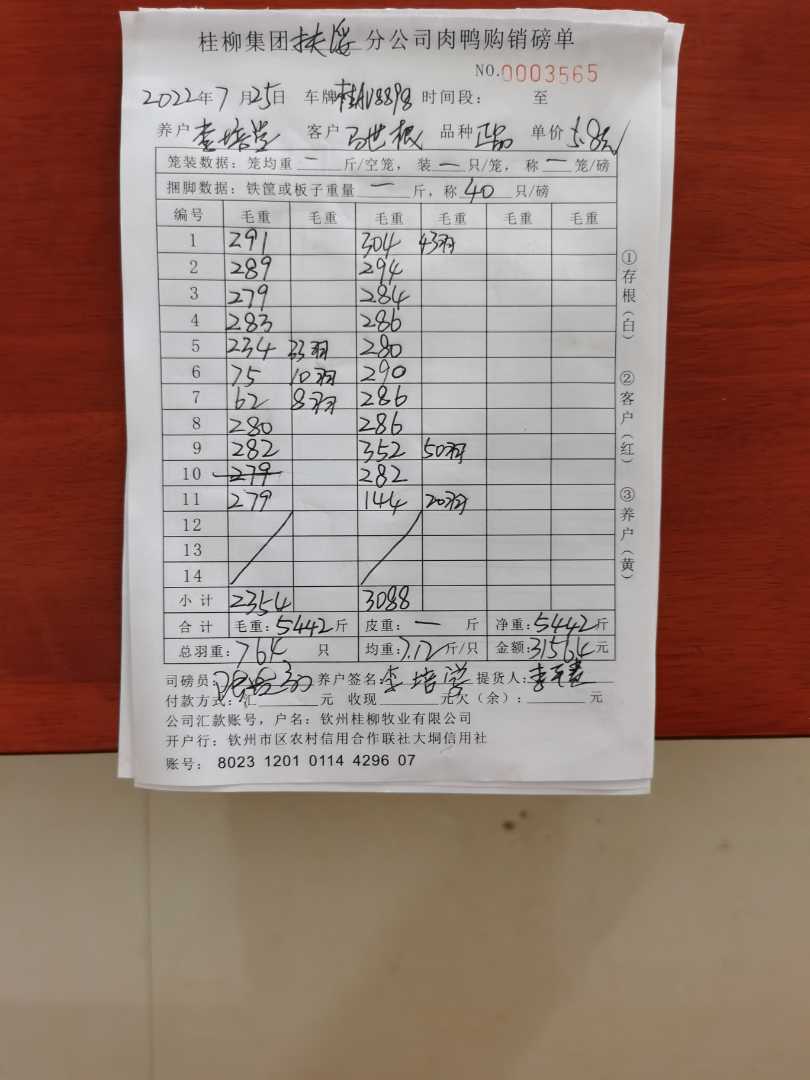 桂柳集团扶绥分公司肉鸭购销磅单
NO.0003565
2022年7月25日 车牌桂AV8898 时间段： 至
养户 李培堂 客户 马世根 品种 正品 单价 5.8元
笼装数据：笼均重 一 斤/空笼，装 一 只/笼，称 一 笼/磅
捆脚数据：铁筐或板子重量 一 斤，称 40 只/磅
编号 毛重 毛重 毛重 毛重 毛重 毛重
1 291 304 43羽
2 289 294
3 279 284
4 283 286
5 234 33羽 280
6 75 10羽 290
7 62 8羽 286
8 280 286
9 282 352 50羽
10 279 282
11 279 144 20羽
12
13
14
小计 2354 3088
合计 毛重：5442斤 皮重：一 斤 净重：5442斤
总羽重：764 只 均重：7.12斤/只 金额：31564元
司磅员： 养户签名：李培堂 提货人：李
付款方式：汇 元 收现 元欠（余）： 元
公司汇款账号，户名：钦州桂柳牧业有限公司
开户行：钦州市区农村信用合作联社大垌信用社
账号： 8023 1201 0114 4296 07
①存根（白）
②客户（红）
③养户（黄）